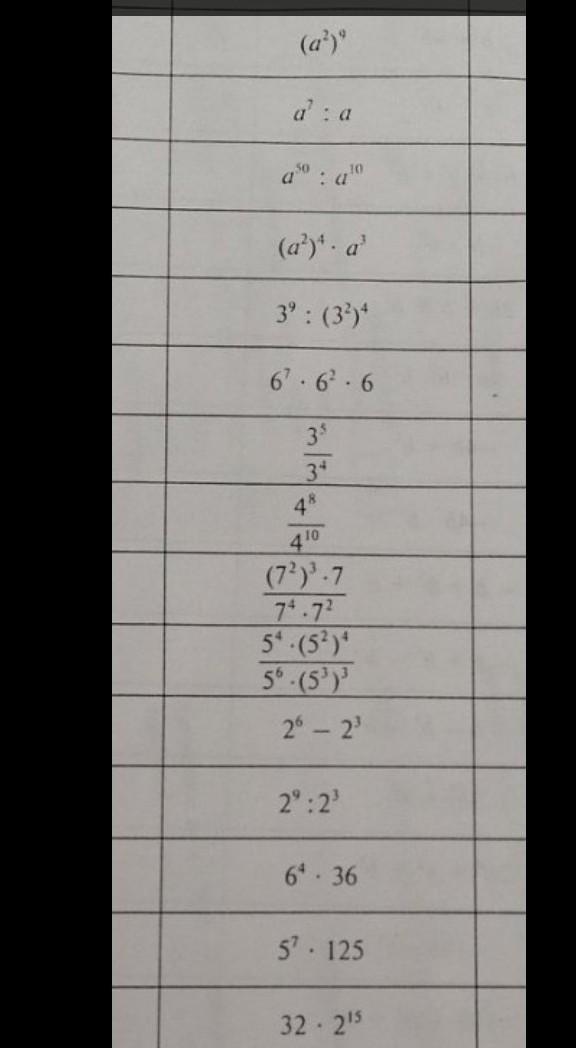 (a²)⁹
a⁷ : a
a⁵⁰ : a¹⁰
(a²)⁴ · a³
3⁹ : (3²)⁴
6⁷ · 6² · 6
3⁵/3⁴
4⁸/4¹⁰
(7²)³·7/7⁴·7²
5⁴·(5²)⁴/5⁶·(5³)³
2⁶ − 2³
2⁹:2³
6⁴ · 36
5⁷ · 125
32 · 2¹⁵